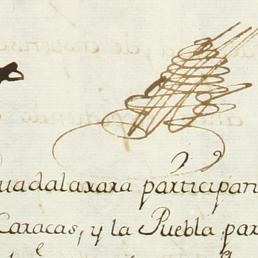 uadalaxara participan
Caracas, y la Puebla par